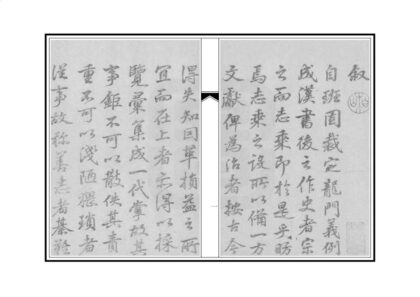 叙
自班固裁定龍門義例
成漢書後之作史者宗
之而志乘即於是乎昉
焉志乘之設所以備一方
文獻俾為治者按古今
得失知因革損益之所
宜而在上者亦得以採
覽彙集成一代掌故其
事鉅不可以散佚其責
重不可以淺陋猥瑣者
從事故称善志者綦難